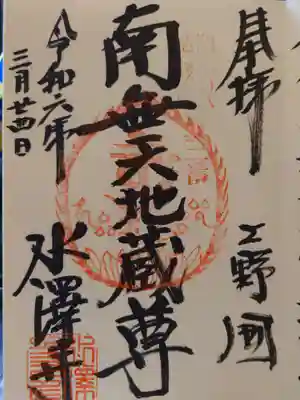 奉拝
上野国
南無天地蔵尊
水澤寺
令和六年
三月廿四日